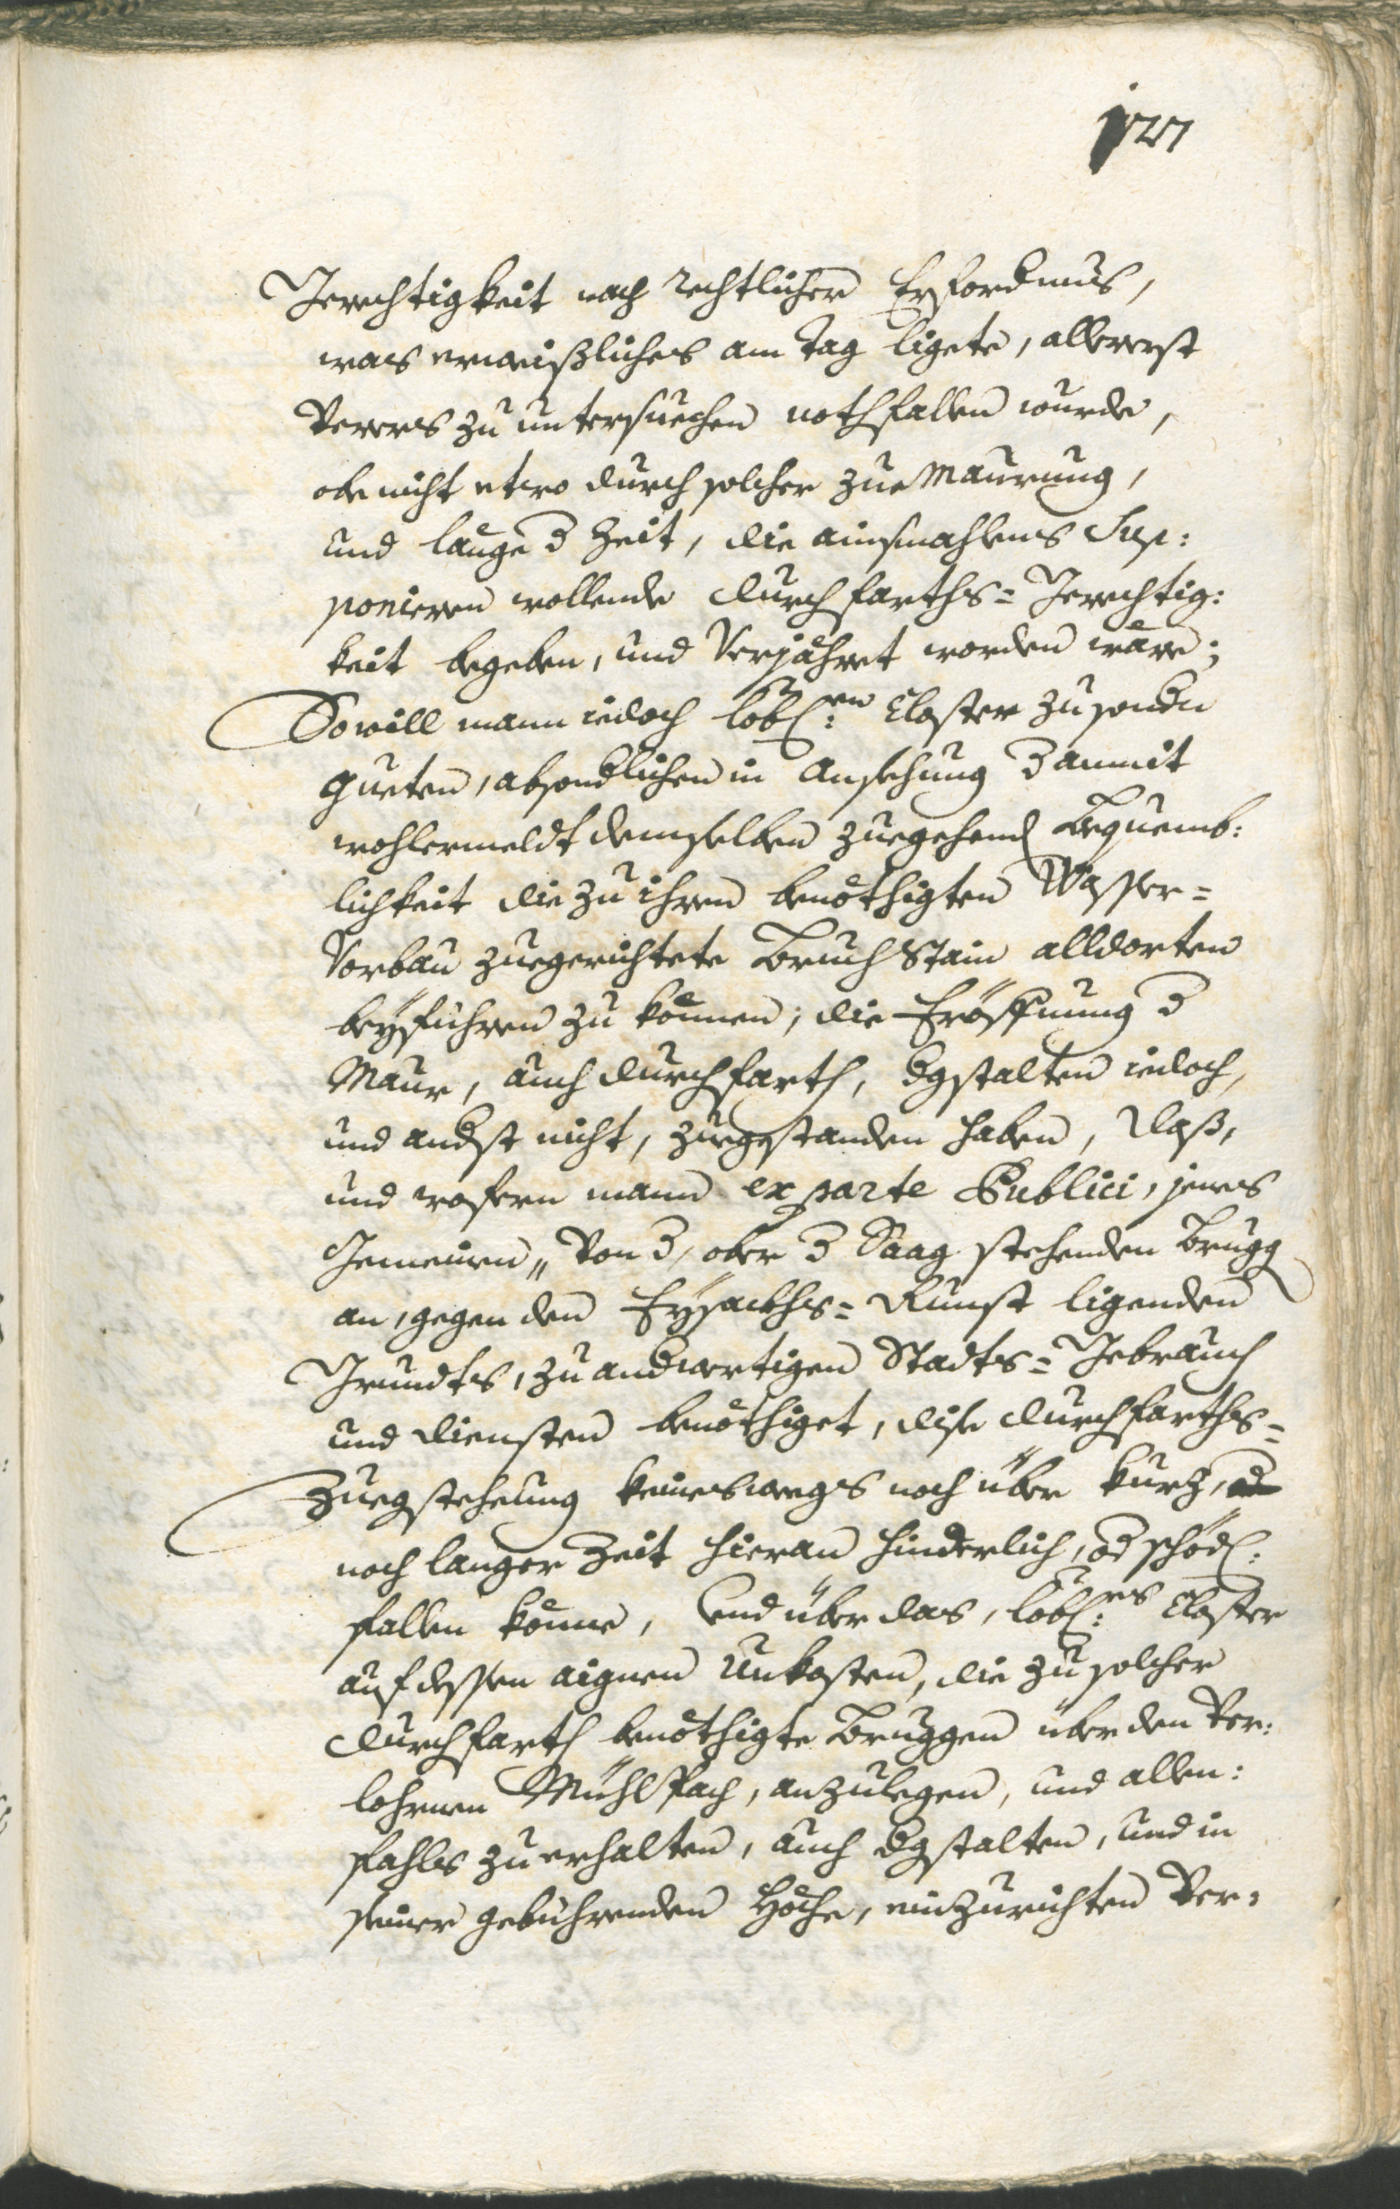 127
Gerechtigkeit nach rechtlicher Erfordernus,
was erweißliches am Tag ligete, allererst
Vorers zu untersuechen nothfallen wurde,
obe nicht etwo durch solcher zue Maurung,
und lange der Zeit, die ainsmahlens Sup:
ponieren wollende durchfarths= Gerechtig:
keit begeben, und Verjähret worden wäre;
So will mann iedoch lobl:en Closter zu sondern
gueten, absonderlichen in Ansehung der anmit
wohlermeldt demselben zuegehend Bequemb:
lichkeit die zu ihren benöthigten Wasser=
Vorbau zuegerichtete Bruch Stain alldorten
beÿführen zu können; die Eröffnung der
Maur, auch durchfarth, dergstalten iedoch,
und anderst nicht, zuegestanden haben, daß,
und wofern mann ex parte Publici, jenes
Gemeinen „ Von der, ober der Saag stehenden Brugg
an, gegen den Eÿsackhs= Runst ligenden
Grundts, zu anderwertigen Stadts= Gebrauch
und diensten benöthiget, dise durchfarths=
Zuegstehung keineswegs noch über kurz, od
noch langer Zeit hieran hinderlich, od schödl:
fallen könne, Und über das, lobl:es Closter
auf dessen aignen Unkosten, die zu solcher
durchfarth benöthigte Bruggen über den Ver:
lohrnen Mühl Pach, anzulegen, und allen:
fahls zu erhalten, auch dergstalten, und in
seiner gebührenden Höche, einzurichten Ver=